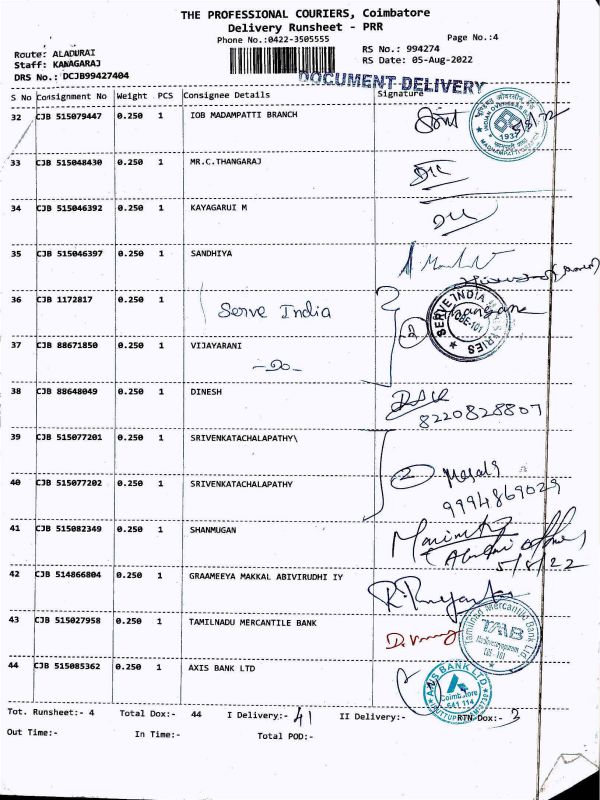 THE PROFESSIONAL COURIERS, Coimbatore
Delivery Runsheet - PRR
Phone No.:0422-3505555
Page No.:4
Route: ALADURAI
RS No.: 994274
Staff: KANAGARAJ
RS Date: 05-Aug-2022
DRS No.: DCJB99427404
DOCUMENT DELIVERY
S No Consignment No Weight PCS Consignee Details Signature
32 CJB 515079447 0.250 1 IOB MADAMPATTI BRANCH 5/8/22
1937
33 CJB 515048430 0.250 1 MR.C.THANGARAJ
34 CJB 515046392 0.250 1 KAYAGARUI M
35 CJB 515046397 0.250 1 SANDHIYA
36 CJB 1172817 0.250 1 Serve India
SERVE INDIA
37 CJB 88671850 0.250 1 VIJAYARANI 2
-Do-
38 CJB 88648049 0.250 1 DINESH
8220828807
39 CJB 515077201 0.250 1 SRIVENKATACHALAPATHY\
40 CJB 515077202 0.250 1 SRIVENKATACHALAPATHY 2
9994869029
41 CJB 515082349 0.250 1 SHANMUGAN
5/8/22
42 CJB 514866804 0.250 1 GRAAMEEYA MAKKAL ABIVIRUDHI IY
43 CJB 515027958 0.250 1 TAMILNADU MERCANTILE BANK
Tamilnad Mercantile Bank Ltd.
44 CJB 515085362 0.250 1 AXIS BANK LTD
AXIS BANK LTD.
Coimbatore
641 114
Tot. Runsheet:- 4 Total Dox:- 44 I Delivery:- 41 II Delivery:- RTN Dox:- 3
Out Time:- In Time:- Total POD:-